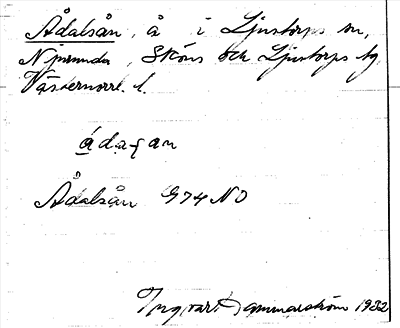 Ådalsån, å i Ljustorps sn,
Njurunda, Sköns och Ljustorps tg
Västernorrl. l.
ádaɋan
Ådalsån G74 NO
Ingvar Hammarström 1932